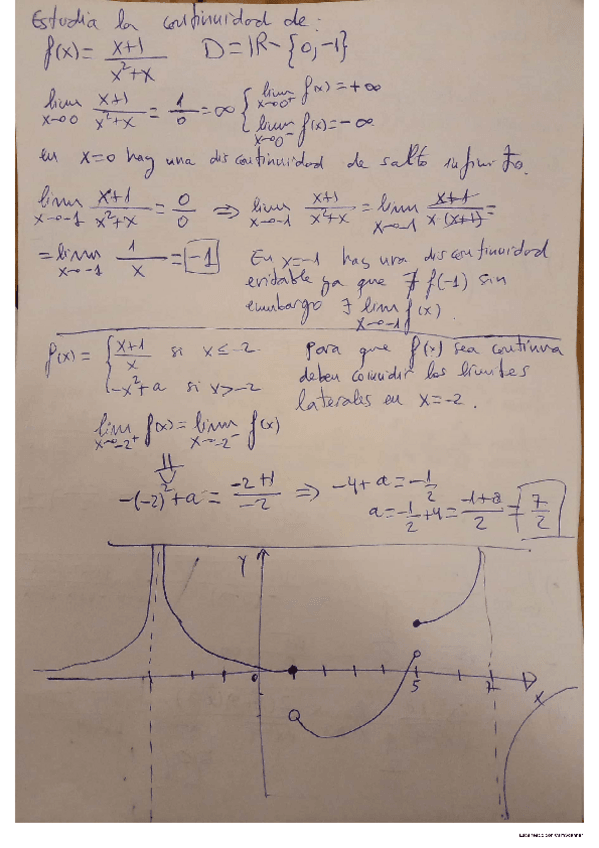 Estudia la continuidad de:
f(x) = x+1 / x²+x    D = IR - {0,-1}
lim x→0 x+1 / x²+x = 1/0 = ∞ { lim x→0⁺ f(x) = +∞
lim x→0⁻ f(x) = -∞
en x=0 hay una discontinuidad de salto infinito.
lim x→-1 x+1 / x²+x = 0/0 ⇒ lim x→-1 x+1 / x²+x = lim x→-1 x+1 / x·(x+1) =
= lim x→-1 1/x = -1    En x=-1 hay una discontinuidad
evitable ya que ∄ f(-1) sin
embargo ∃ lim x→-1 f(x).
f(x) = { x+1 / x si x ≤ -2    Para que f(x) sea continua
-x²+a si x > -2    deben coincidir los límites
laterales en x=-2.
lim x→-2⁺ f(x) = lim x→-2⁻ f(x)
⇓
-(-2)²+a = -2+1 / -2 ⇒ -4+a = -1/2
a = -1/2 + 4 = -1+8 / 2 = 7/2
Y
0 5 7 X